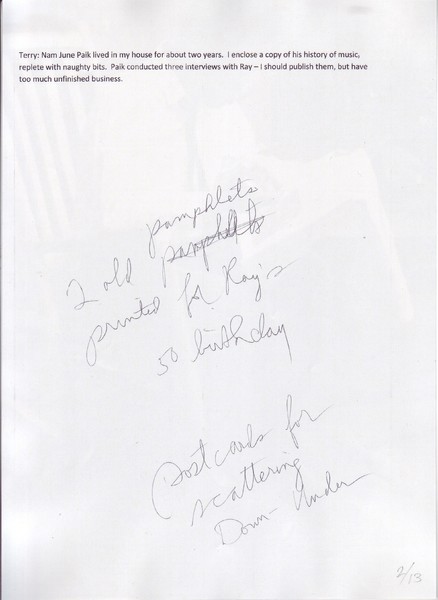 Terry: Nam June Paik lived in my house for about two years.  I enclose a copy of his history of music,
replete with naughty bits.  Paik conducted three interviews with Ray – I should publish them, but have
too much unfinished business.
pamphlets
2 old pamphlets
printed for Ray's
50 birthday
Postcards for
scattering
Down-Under
2/13